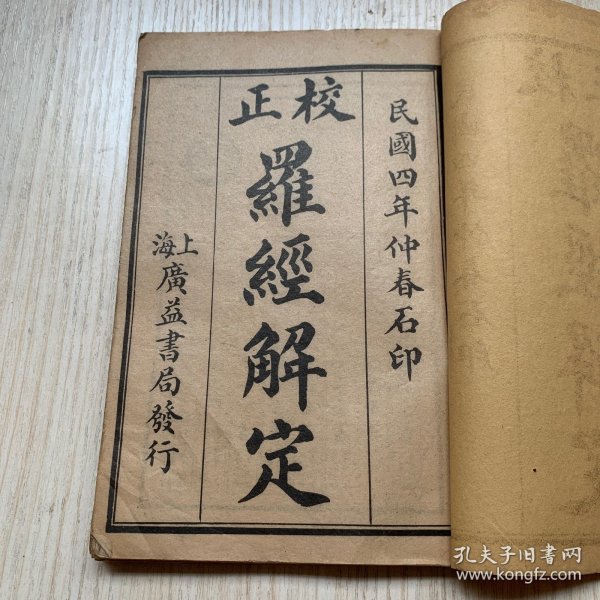 民國四年仲春石印
校正
羅經解定
上海
廣益書局發行
孔夫子旧书网
www.kongfz.com